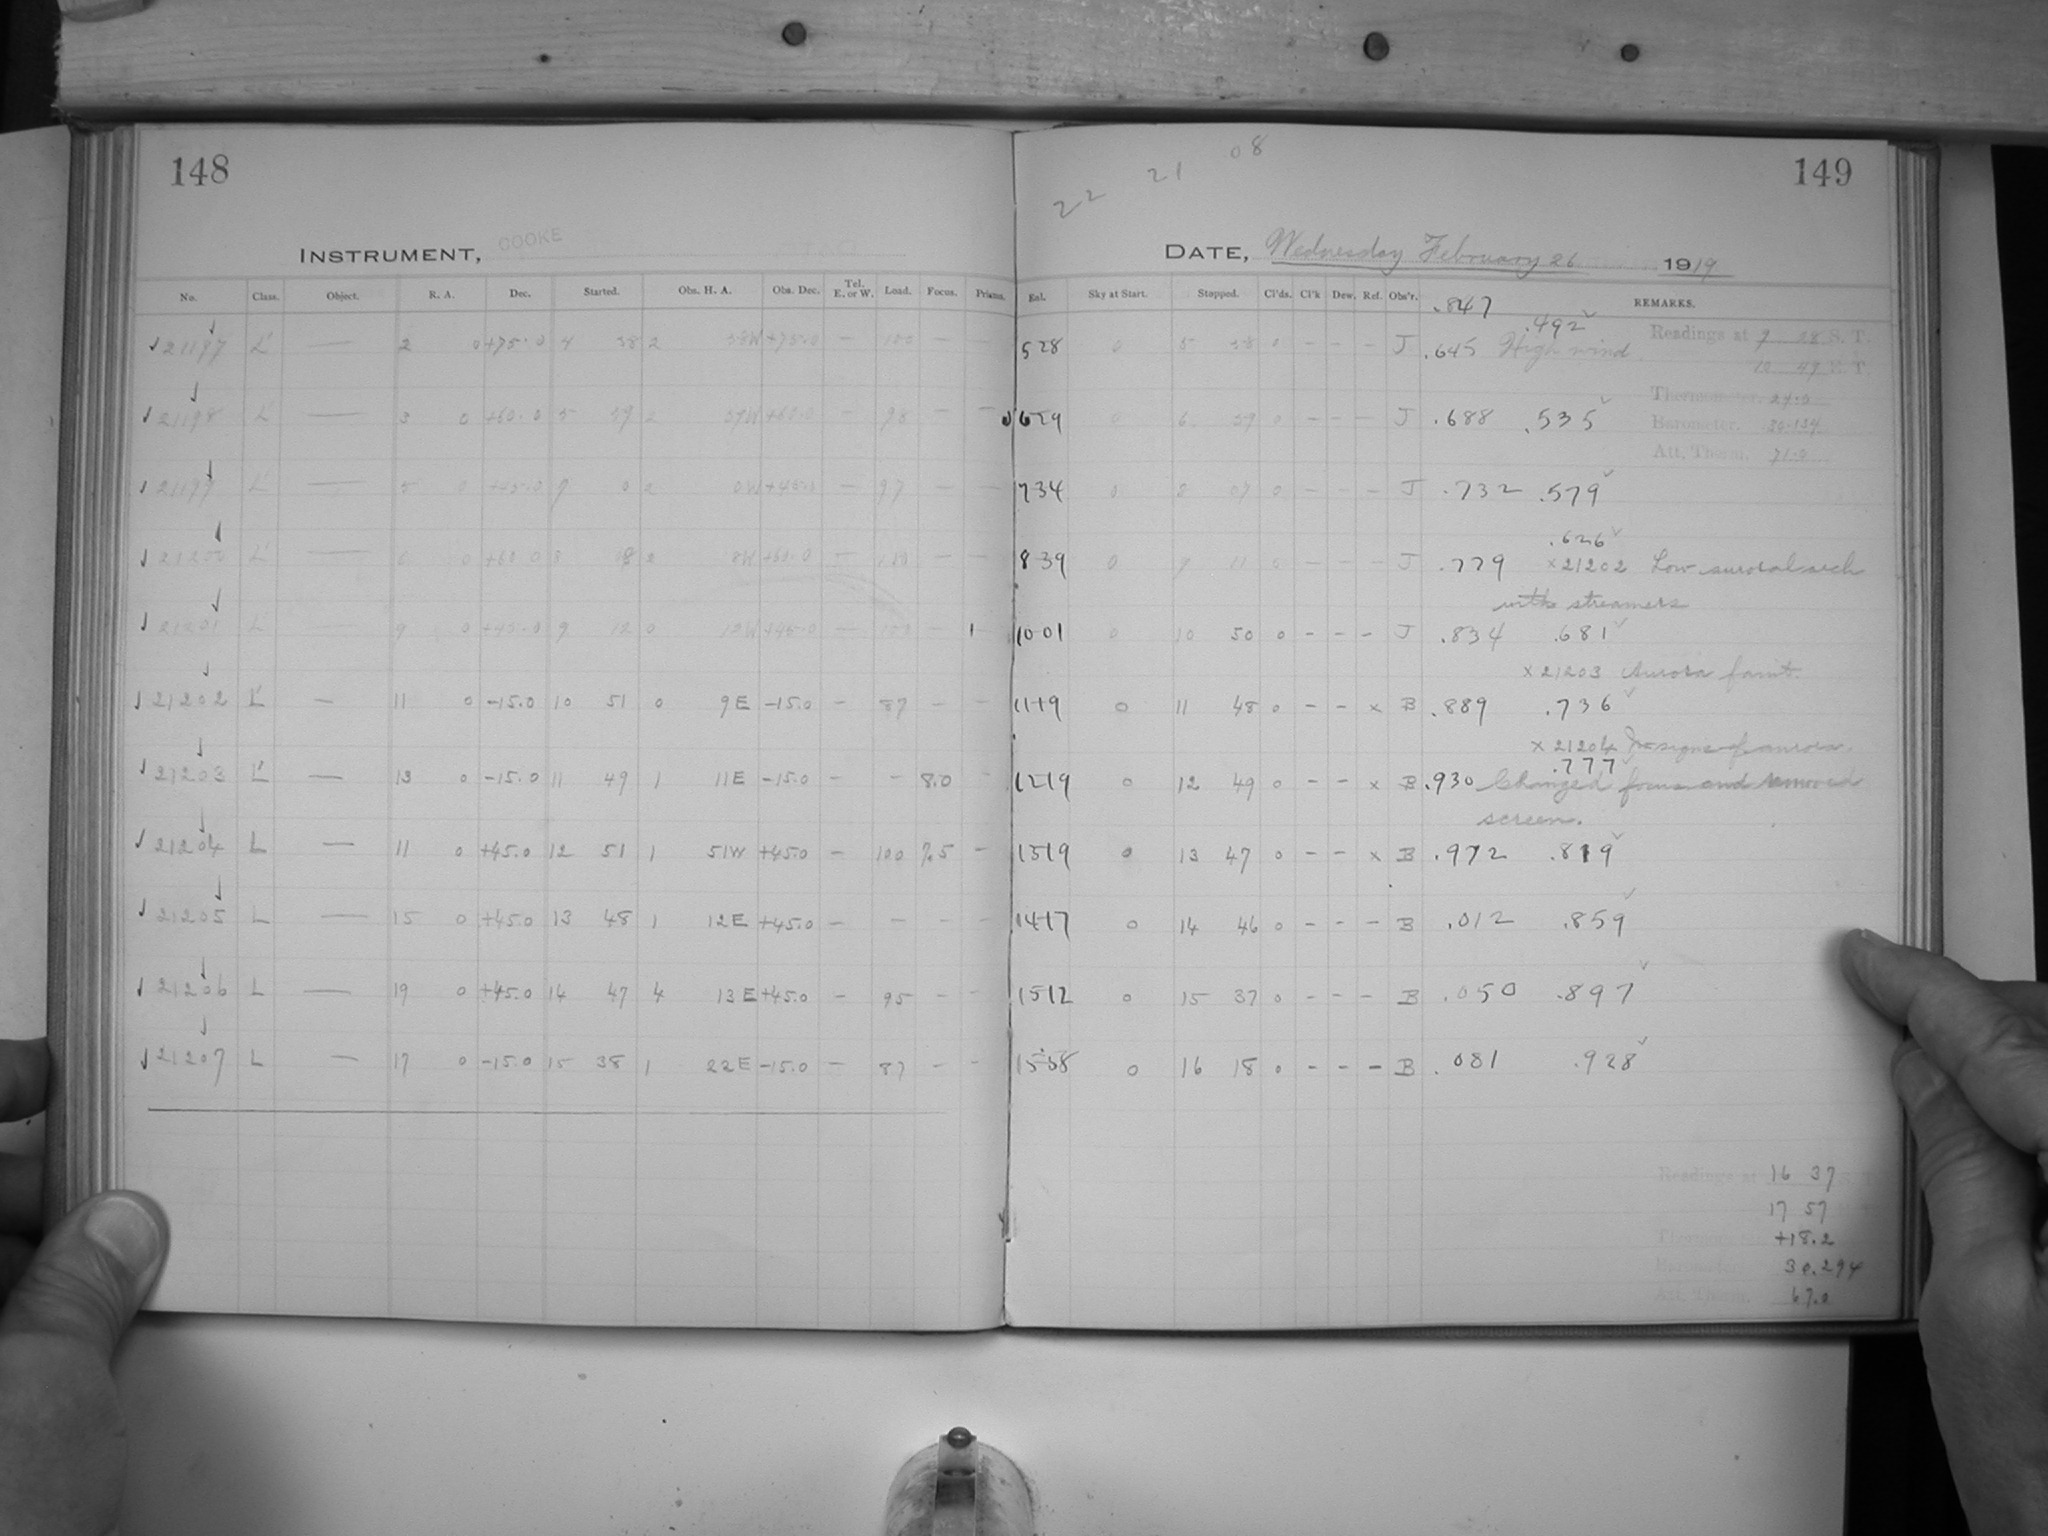 148
INSTRUMENT, COOKE
No. Class. Object. R. A. Dec. Started. Obs. H. A. Obs. Dec. Tel. E. or W. Load. Focus. Prisms.
21197 L' — 2 0 +75.0 4 58 2 58W +75.0 — 100 — —
21198 L' — 3 0 +60.0 5 59 2 59W +60.0 — 98 — —
L' — 5 0 +45.0 7 0 2 0W +45.0 — 97 — —
L' — 6 0 +60.0 8 08 2 8W +60.0 — — —
21201 L — 9 0 +45.0 9 12 0 12W +45.0 — 100 —
21202 L' — 11 0 -15.0 10 51 0 9E -15.0 — 87 — —
21203 L' — 13 0 -15.0 11 49 1 11E -15.0 — — 8.0 —
21204 L — 11 0 +45.0 12 51 1 51W +45.0 — 100 7.5 —
21205 L — 15 0 +45.0 13 48 1 12E +45.0 — — — —
21206 L — 19 0 +45.0 14 47 4 13E +45.0 — 95 — —
21207 L — 17 0 -15.0 15 38 1 22E -15.0 — 87 — —
22 21 08
149
DATE, Wednesday February 26 1919
Eal. Sky at Start. Stopped. Cl'ds. Cl'k Dew. Ref. Obs'r. REMARKS.
.847
.492
528 0 5 58 0 - - - J .645 High wind
Readings at 9 08 S. T.
10 49 S. T.
Thermometer. 29.0
Barometer. 30.134
Att. Therm. 71.0
629 0 6 59 0 - - - J .688 .535
734 0 8 07 0 - - - J .732 .579
.626
839 0 9 11 0 - - - J .779 x 21202 Low auroral arch
with streamers
1001 0 10 50 0 - - - J .834 .681
x 21203 Aurora faint.
1119 0 11 48 0 - - x B .889 .736
x 21204 No signs of aurora.
.777
1219 0 12 49 0 - - x B .930 Changed focus and removed
screen.
1319 0 13 47 0 - - x B .972 .819
1417 0 14 46 0 - - - B .012 .859
1512 0 15 37 0 - - - B .050 .897
1558 0 16 18 0 - - - B .081 .928
Readings at 16 37
17 57
+18.2
Barometer. 30.294
Att. Therm. 67.0